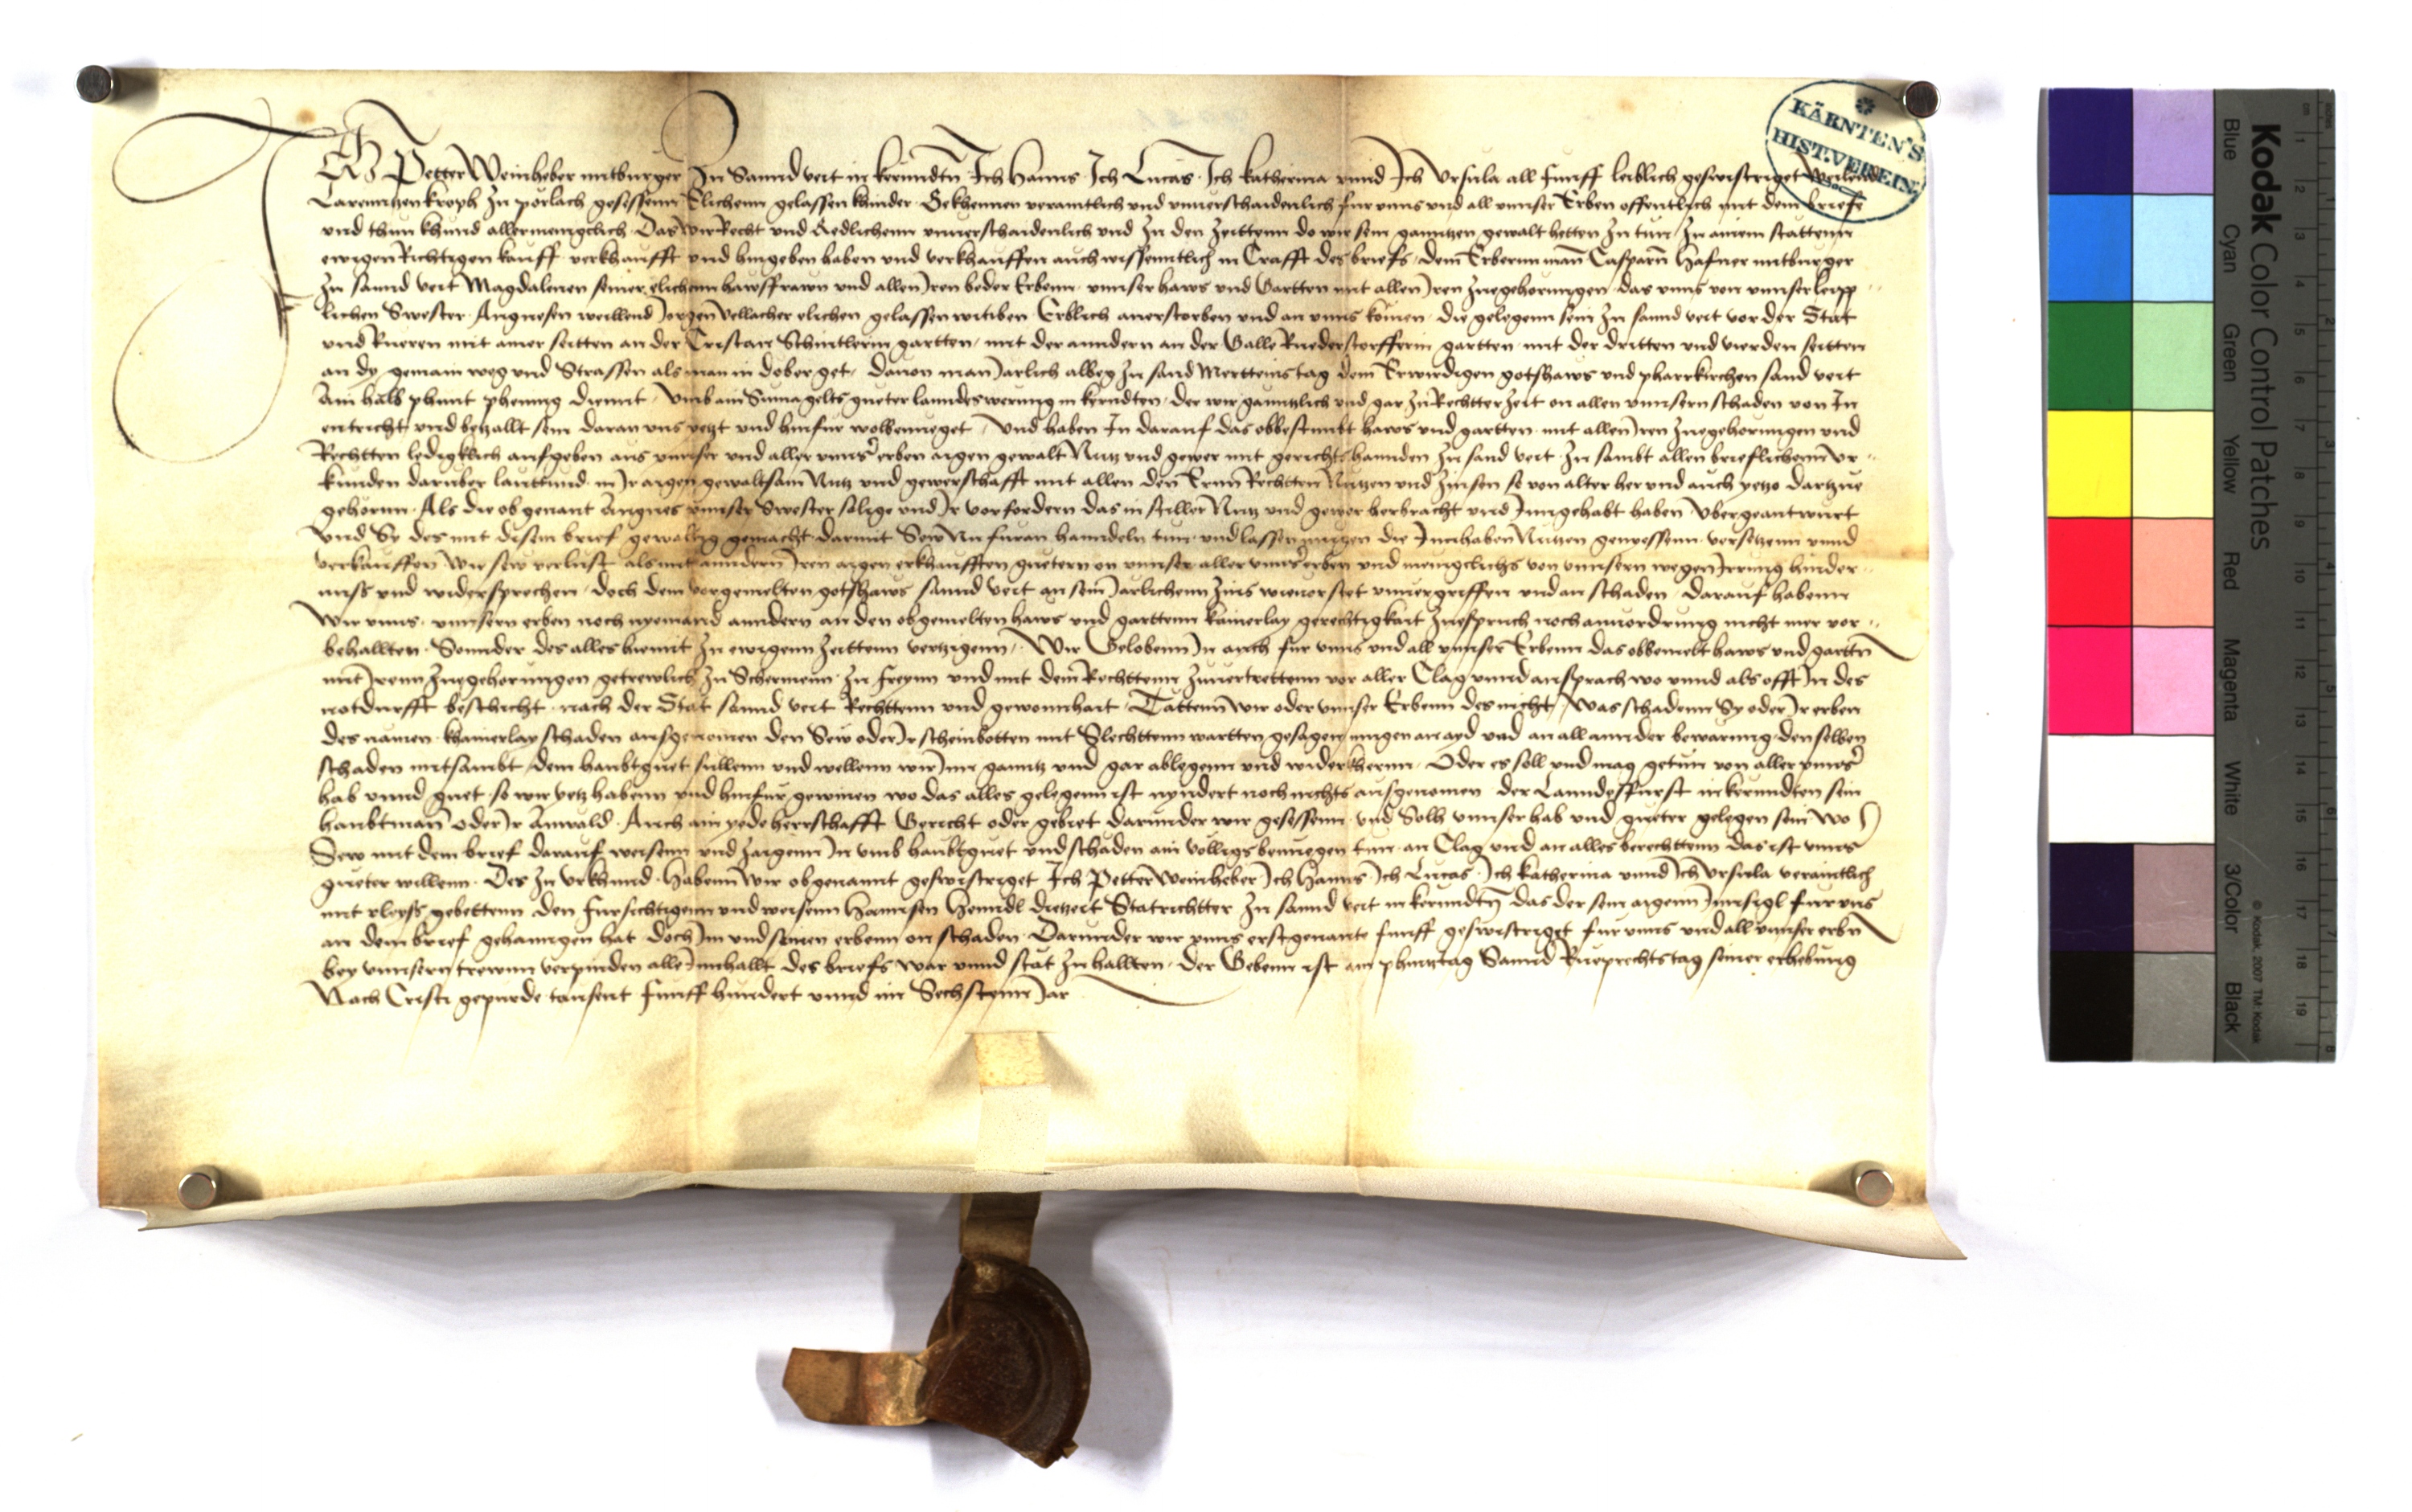 Ich Petter Weinheber mitburger Zu Sannd veit in kerinndtn Ich Hanns Ich Lucas Ich katherina vnnd Ich Vrsula all funff leiblich geswistriget Weilend
Larenntzen kroph Zu porlach gesessenn Elichenn gelassen khinder Bekhennen veraintlich vnd vnuerschaidenlich fur vnns vnd all vnnser Erben offentlich mit dem briefe
vnd thun khund allermenigclich Das wir Recht vnd Redlichenn vnuerschaidenlich vnd Zu den Zeittenn do wir sein ganntzen gewalt hetten Zu tun Zu ainem stattenn
ewigen Richtigen kauff verkhaufft vnd hingeben haben vnd verkhauffen auch wissenntlich in Crafft des briefs dem Erbernn man Casparn Hafner mitburger
Zu sannd veit Magdalenen seiner elichenn hawsffrawn vnd allen Iren beder Erbenn vnnser haws vnd Gartten mit allen Iren Zuegehorungen das vnns von vnnser leipp
lichen Swester Angnesen weillend Jorgen Vellacher elichen gelassen witiben Erblich anerstorben vnd an vnns komen die gelegenn sein Zu sannd veit vor der Stat
vnd Rueren mit ainer seitten an der Cristan Schintlerin gartten mit der anndern an der Galle Ruederstorfferin gartten mit der dritten vnd vierden seitten
an dy gemain weg vnd Strassen als man in dober get dauon man Jarlich albeg Zu sand Mertteinstag dem Erwirdigen gotshaws vnd pharrkirchen sand veit
Ain halb phunt phennig diennt Vmb ain Suma gelts gueter lanndeswerung in kerndten der wir ganntzlich vnd gar Zu Rechtter Zeit on allen vnnsern schaden von In
entricht vnd betzallt sein daran vns yetzt vnd hinfur wolbenueget Vnd haben In darauf das obbestimbt haws vnd gartten mit allen Iren Zuegehorungen vnd
Rechtten ledigklich aufgeben aus vnnser vnd aller vnnser erben aigen gewalt Nutz vnd gewer mit gerichtshannden Zu sand veit Zu sambt allen brieflichenn vr
kunden daruber lauttund in Ir aigen gewaltsam Nutz vnd gewerschafft mit allen den Ernn Rechtten Nutzen vnd Zinsen so von alter her vnd auch yetzo dartzue
gehornn Als die obgenant Angnes vnnser Swester salige vnd Ir vorfordern das in stiller Nutz vnd gewer herbracht vnd Inngehabt haben Vbergeantwurt
vnd Sy des mit disem brief gewaltig gemacht darmit Sew Nu furan hanndeln tun vnd lassen mugen die Innhaben Nutzen genyessenn versetzenn vnnd
verkauffen wie sew verlust als mit anndern Iren aigen erkhaufften guetern on vnnser aller vnnser erben vnd menigclichs von vnnsern wegen Irrung hinder
nuss vnd widersprechen doch dem vorgemelten gotshaws sannd veit an sein Jarlichenn Zins wieuorstet vnuergriffen vnd an schaden Darauf habenn
Wir vnns vnnsern erben noch nyemand anndern an den obgemelten haws vnd garttenn kainerlay gerechtigkait Zuespruch noch anuordrung nicht mer vor
behallten Sonnder des alles hiemit Zu ewigenn Zeittenn vertzigenn Wir Gelobenn In auch fur vnns vnd all vnnser Erbenn das obbemelt haws vnd gartten
mit Irenn Zuegehorungen getrewlich Zu Schermenn Zu freynn vnd mit dem Rechttenn Zuuertrettenn vor aller Clag vnnd ansprach wo vnnd als offt In des
notdurfft beschicht nach der Stat sannd veit Rechttenn vnd gewonnhait Tattenn wir oder vnnser Erbenn des nicht Was schadenn Sy oder Ir erben
des namen khainerlay schaden ausgenomen den Sew oder Ir scheinbotten mit Slechttenn wartten gesagen mugen an ayd vnd an all annder bewarung denselben
schaden mitsambt dem haubtguet sullenn vnd wellenn wir Inn ganntz vnd gar ablegenn vnd widerkhernn Oder es soll vnd mag getun von aller vnnser
hab vnnd guet so wir yetz habenn vnd hinfur gewinen wo das alles gelegenn ist nyndert noch nichts ausgenomen der Lanndesffurst in kerundten sein
haubtman oder Ir Anwald Auch ain yede herrschafft Gericht oder gebiet darunder wir gesessenn vnd Solh vnnser hab vnd gueter gelegen sein Wo
Sew mit dem brief darauf weisenn vnd Zaigenn In vmb haubtguet vnd schaden ain volligs benuegen tun an Clag vnd an alles berechttenn das ist vnns
gueter willenn Des Zu Vrkhund Habenn wir obgenannt geswistriget Ich Petter Weinheber Ich Hanns Ich Lucas Ich katherina vnnd Ich Vrsula veraintlich
mit vleyss gebettenn den fursichtigenn vnd weisenn Hannsen Henndl dietzeit Statrichtter Zu sannd veit in kerunndtn das der sein aigenn Innsigl fur vns
an dem brief gehanngen hat doch Im vnd seinen erbenn on schaden Darunder wir vnns erstgenante funff geswistriget fur vnns vnd all vnnser erbn
bey vnnsern trewnn verpinden alle Innhallt des briefs war vnnd stat Zu hallten Der Gebenn ist am phintztag Sannd Rueprechtstag seiner erhebung
Nach Cristi gepurde tausent funff hundert vnnd im Sechstenn Jar
KÄRNTEN'S
HIST. VEREIN.
Kodak Color Control Patches
Blue Cyan Green Yellow Red Magenta White 3/Color Black
© Kodak, 2007 TM: Kodak